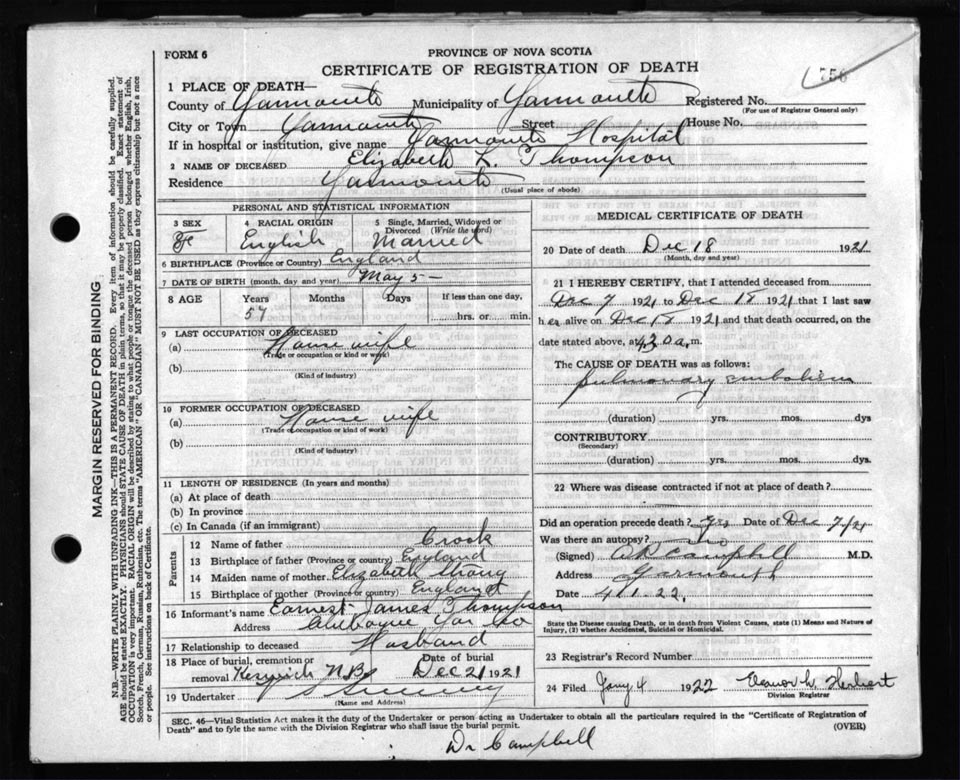 FORM 6
PROVINCE OF NOVA SCOTIA
CERTIFICATE OF REGISTRATION OF DEATH
556
1 PLACE OF DEATH—
County of Yarmouth Municipality of Yarmouth Registered No.
(For use of Registrar General only)
City or Town Yarmouth Street House No.
If in hospital or institution, give name Yarmouth Hospital
2 NAME OF DECEASED Elizabeth L. Thompson
Residence Yarmouth
(Usual place of abode)
PERSONAL AND STATISTICAL INFORMATION
3 SEX 4 RACIAL ORIGIN 5 Single, Married, Widowed or Divorced (Write the word)
Fe English Married
6 BIRTHPLACE (Province or Country) England
7 DATE OF BIRTH (month, day and year) May 5—
8 AGE Years Months Days If less than one day,
57 hrs. or min.
9 LAST OCCUPATION OF DECEASED
(a) House wife
(Trade or occupation or kind of work)
(b)
(Kind of industry)
10 FORMER OCCUPATION OF DECEASED
(a) House wife
(Trade or occupation or kind of work)
(b)
(Kind of industry)
11 LENGTH OF RESIDENCE (In years and months)
(a) At place of death
(b) In province
(c) In Canada (if an immigrant)
Parents
12 Name of father Crook
13 Birthplace of father (Province or country) England
14 Maiden name of mother Elizabeth Strang
15 Birthplace of mother (Province or country) England
16 Informant's name Earnest James Thompson
Address Chebogue Yar Co
17 Relationship to deceased Husband
18 Place of burial, cremation or removal Keswick N.B. Date of burial Dec 21 1921
19 Undertaker
(Name and Address)
MEDICAL CERTIFICATE OF DEATH
20 Date of death Dec 18 1921
(Month, day and year)
21 I HEREBY CERTIFY, that I attended deceased from
Dec 7 1921 to Dec 18 1921 that I last saw
her alive on Dec 18 1921 and that death occurred, on
date stated above, at 4.30 a. m.
The CAUSE OF DEATH was as follows:
pulmonary embolism
(duration) yrs. mos. dys
CONTRIBUTORY
(Secondary)
(duration) yrs. mos. dys.
22 Where was disease contracted if not at place of death?
Did an operation precede death? Yes Date of Dec 7/21
Was there an autopsy? No
(Signed) Campbell M.D.
Address Yarmouth
Date 4.1.22.
State the Disease causing Death, or in death from Violent Causes, state (1) Means and Nature of Injury, (2) whether Accidental, Suicidal or Homicidal.
23 Registrar's Record Number
24 Filed Jany 4 1922 Herbert
Division Registrar
SEC. 46—Vital Statistics Act makes it the duty of the Undertaker or person acting as Undertaker to obtain all the particulars required in the "Certificate of Registration of
Death" and to fyle the same with the Division Registrar who shall issue the burial permit.
(OVER)
Dr Campbell
MARGIN RESERVED FOR BINDING
N.B.—WRITE PLAINLY WITH UNFADING INK—THIS IS A PERMANENT RECORD. Every item of information should be carefully supplied.
AGE should be stated EXACTLY. PHYSICIANS should STATE CAUSE OF DEATH in plain terms, so that it may be properly classified. Exact statement of
OCCUPATION is very important. RACIAL ORIGIN will be described by stating to what people or tongue the deceased person belonged whether English, Irish,
Scotch, French, German, Russian, Ruthenian, etc. The terms "AMERICAN" OR "CANADIAN" MUST NOT BE USED as they express citizenship but not a race
or people. See instructions on back of Certificate.